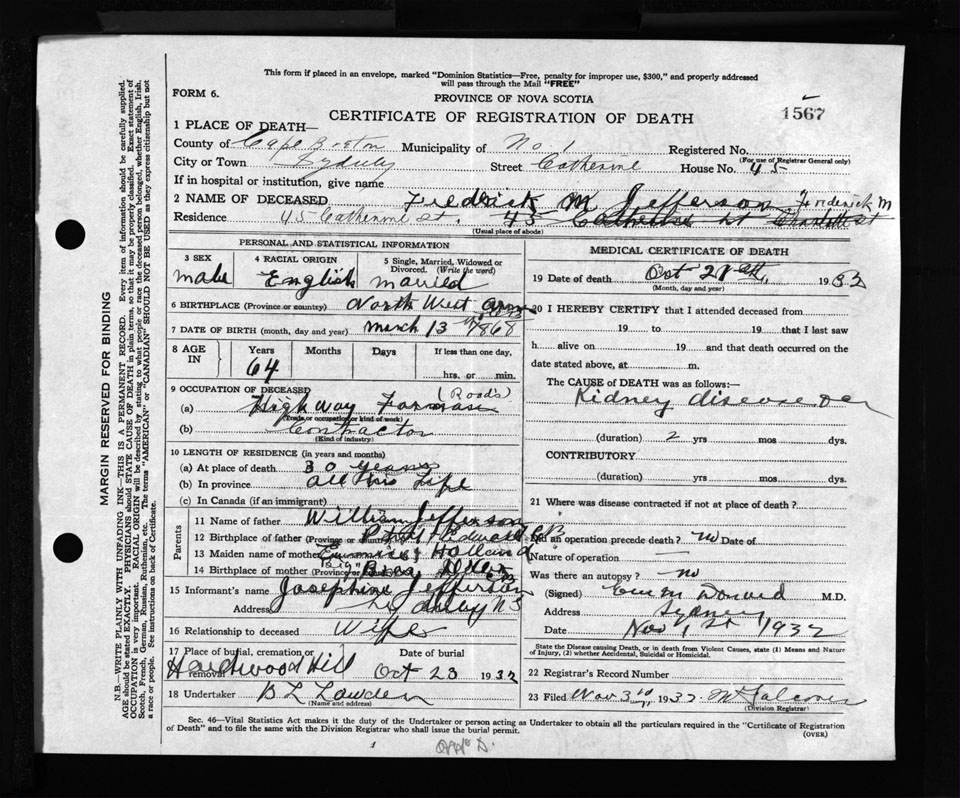 This form if placed in an envelope, marked "Dominion Statistics—Free, penalty for improper use, $300," and properly addressed
will pass through the Mail "FREE"
FORM 6.
PROVINCE OF NOVA SCOTIA
1567
CERTIFICATE OF REGISTRATION OF DEATH
1 PLACE OF DEATH—
County of Cape Breton Municipality of No 1 Registered No.
(For use of Registrar General only)
City or Town Sydney Street Catherine House No. 45
If in hospital or institution, give name
2 NAME OF DECEASED Frederick M Jefferson Frederick M
Residence 45 Catherine St. 45 Catherine St Charlotte st
(Usual place of abode)
PERSONAL AND STATISTICAL INFORMATION
3 SEX
male
4 RACIAL ORIGIN
English
5 Single, Married, Widowed or Divorced. (Write the word)
married
6 BIRTHPLACE (Province or country) North West Arm
7 DATE OF BIRTH (month, day and year) March 13 1868
8 AGE IN
Years Months Days If less than one day,
64 hrs. or min.
9 OCCUPATION OF DECEASED (Roads)
(a) Highway Forman
(Trade, occupation or kind of work)
(b) Contractor
(Kind of industry)
10 LENGTH OF RESIDENCE (in years and months)
(a) At place of death 30 years
(b) In province all his Life
(c) In Canada (if an immigrant)
Parents
11 Name of father William Jefferson
12 Birthplace of father (Province or country) CB
13 Maiden name of mother Holland
14 Birthplace of mother (Province or country) CB
15 Informant's name Josephine Jefferson
Address Sydney NS
16 Relationship to deceased Wife
17 Place of burial, cremation or removal Date of burial
Hardwood Hill Oct 23 1932
18 Undertaker
(Name and address)
MEDICAL CERTIFICATE OF DEATH
19 Date of death Oct 1932
(Month, day and year)
20 I HEREBY CERTIFY that I attended deceased from
19 to 19 that I last saw
h alive on 19 and that death occurred on the
date stated above, at m.
The CAUSE of DEATH was as follows:—
Kidney disease
(duration) 2 yrs mos dys.
CONTRIBUTORY
(duration) yrs mos dys.
21 Where was disease contracted if not at place of death?
Did an operation precede death? no Date of
Nature of operation —
Was there an autopsy? no
(Signed) M.D.
Address Sydney
Date Nov 1st 1932
State the Disease causing Death, or in death from Violent Causes, state (1) Means and Nature of Injury, (2) whether Accidental, Suicidal or Homicidal.
22 Registrar's Record Number
23 Filed Nov 3rd 1932
(Division Registrar)
Sec. 46—Vital Statistics Act makes it the duty of the Undertaker or person acting as Undertaker to obtain all the particulars required in the "Certificate of Registration
of Death" and to file the same with the Division Registrar who shall issue the burial permit.
(OVER)
MARGIN RESERVED FOR BINDING
N.B.—WRITE PLAINLY WITH UNFADING INK—THIS IS A PERMANENT RECORD. Every item of information should be carefully supplied.
AGE should be stated EXACTLY. PHYSICIANS should STATE CAUSE OF DEATH in plain terms, so that it may be properly classified. Exact statement of
OCCUPATION is very important. RACIAL ORIGIN will be described by stating to what people or race the deceased person belonged, whether English, Irish,
Scotch, French, German, Russian, Ruthenian, etc. The terms "AMERICAN" or "CANADIAN" SHOULD NOT BE USED as they express citizenship but not
a race or people. See instructions on back of Certificate.